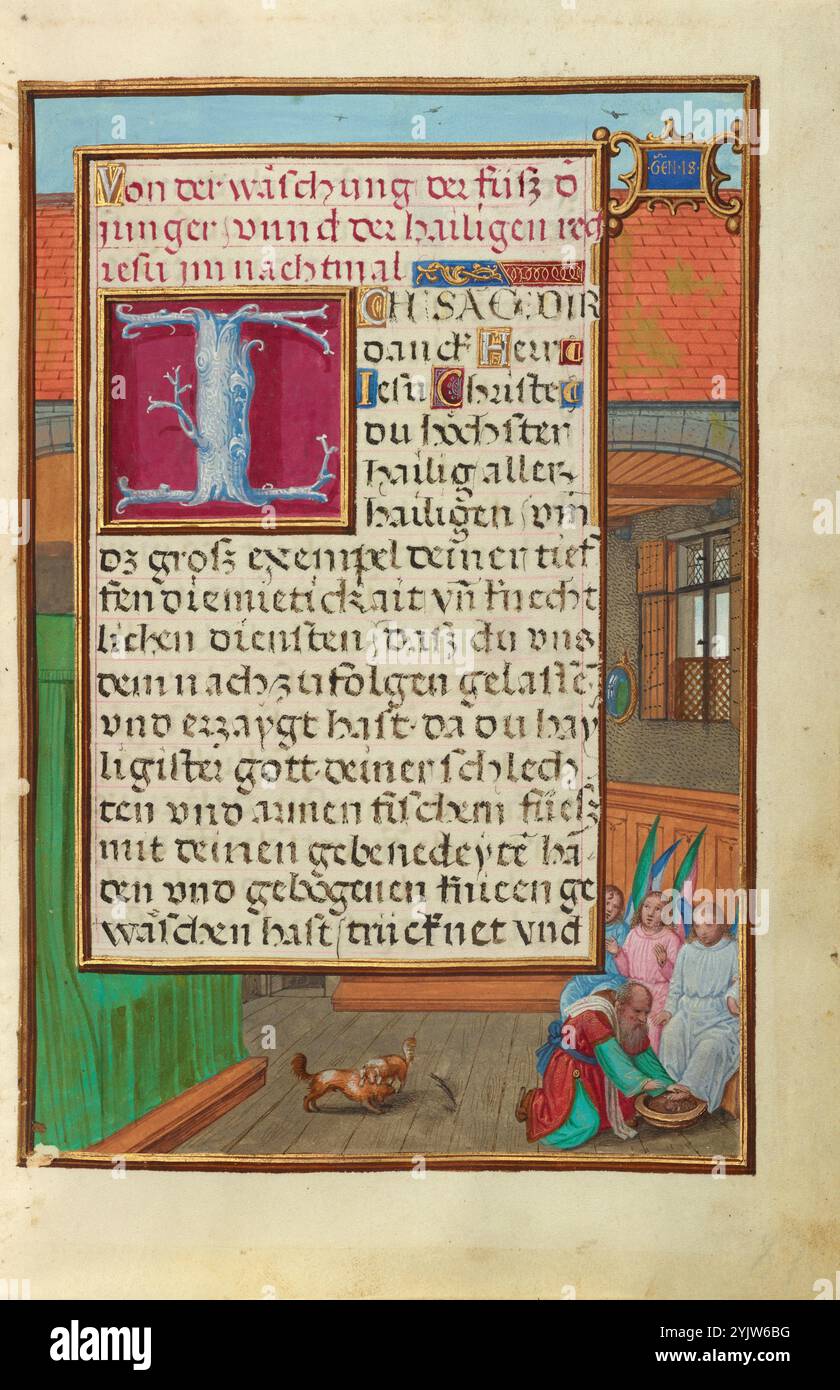 GEN·18·
Von der wäschung der füsz d̄
junger, vnnd der hailigen red
iesu im nachtmal
ICH SAG DIR
danck Herr
Iesu Christe
du höchster
hailig aller
hailigen, vm̄
dz grosz exempel deiner tief
fen diemietickait vn̄ knecht
lichen diensten, dasz du vns
dem nachzufolgen gelassē
vnd erzaygt hast· da du hay
ligister gott· deiner schlech
ten vnd armen fischern füesz
mit deinen gebenedeytē hā
den vnd gebögenen knieen ge
wäschen hast, trücknet vnd
alamy
Image ID: 2YJW6BG
www.alamy.com